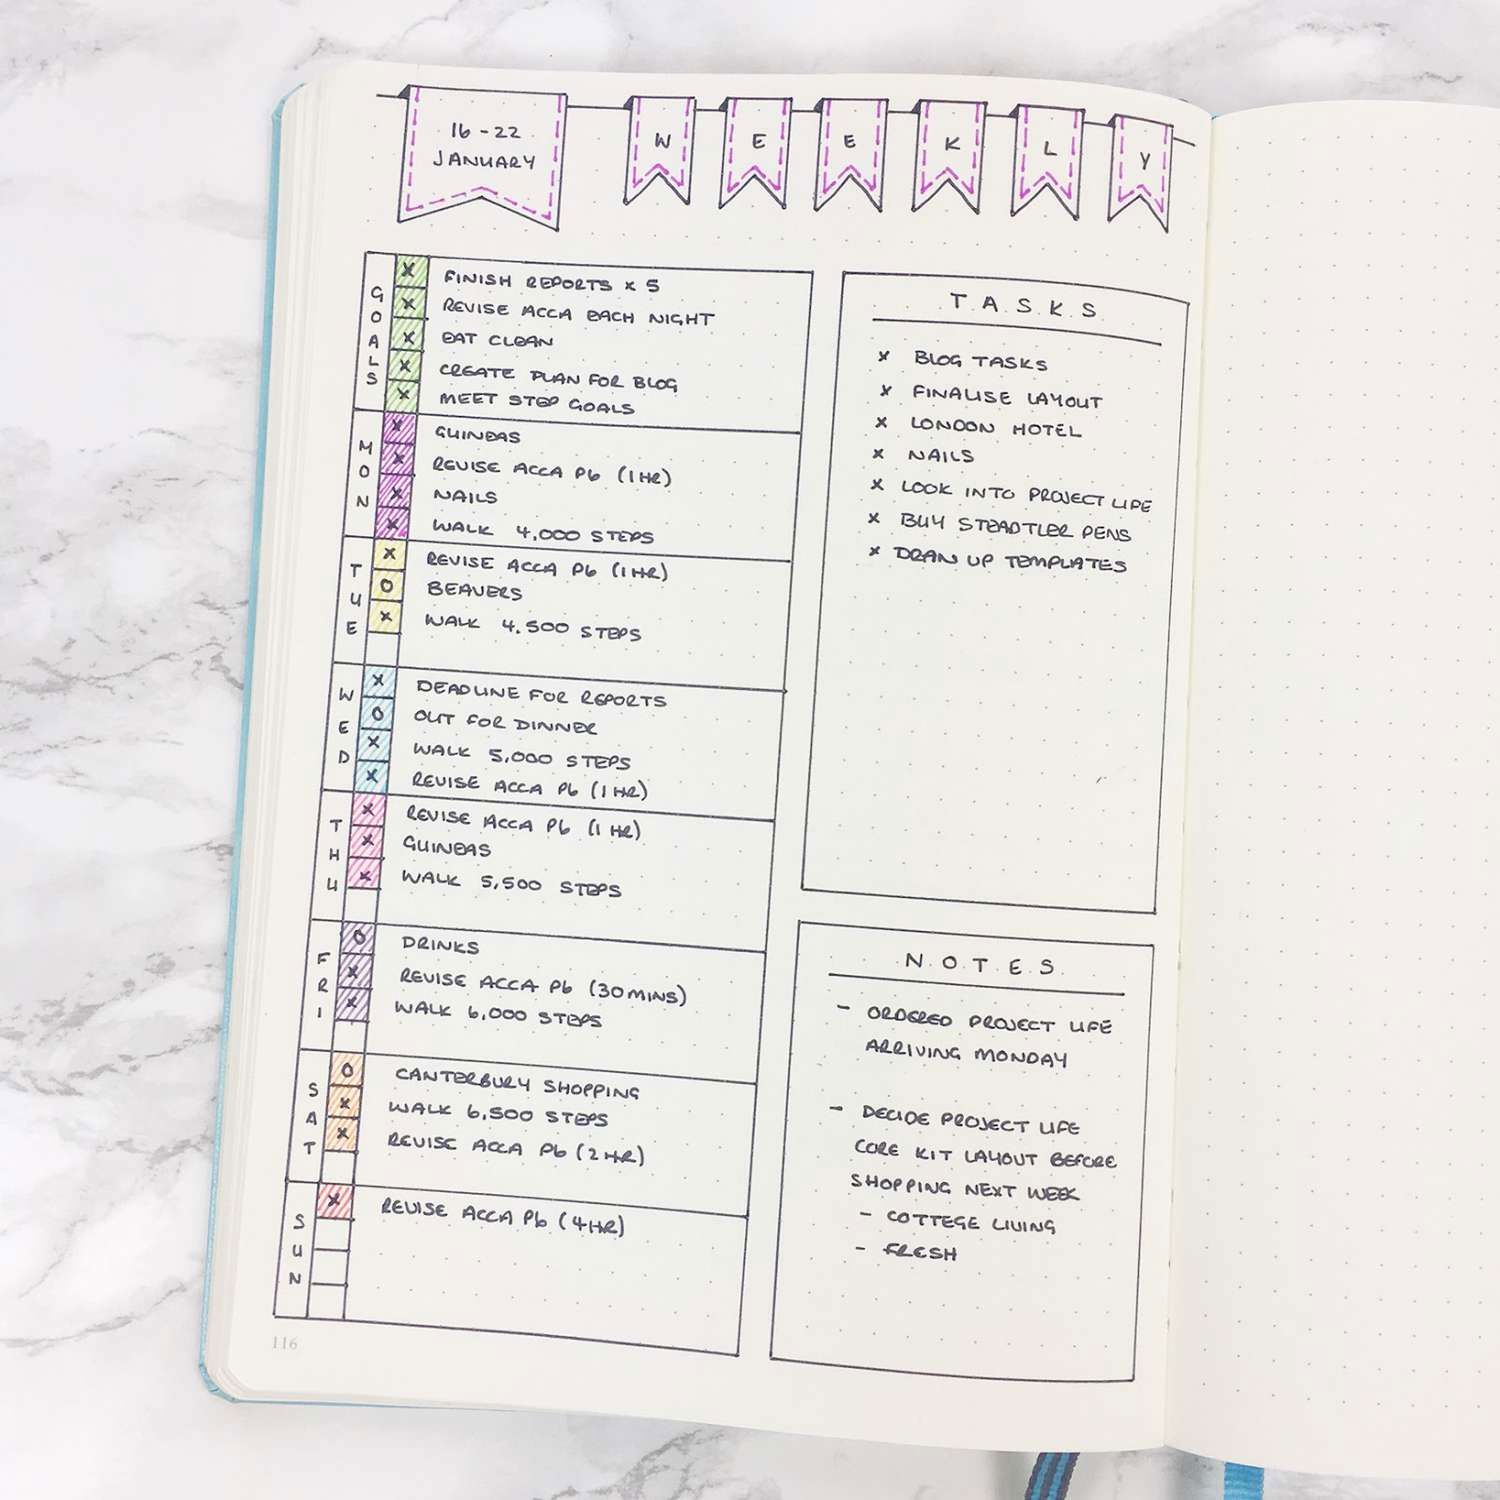 16-22
JANUARY
WEEKLY
GOALS
x FINISH REPORTS x 5
x REVISE ACCA EACH NIGHT
x EAT CLEAN
x CREATE PLAN FOR BLOG
x MEET STEP GOALS
MON
x GUINEAS
x REVISE ACCA P6 (1HR)
x NAILS
x WALK 4,000 STEPS
TUE
x REVISE ACCA P6 (1HR)
O BEAVERS
x WALK 4,500 STEPS
WED
x DEADLINE FOR REPORTS
O OUT FOR DINNER
x WALK 5,000 STEPS
x REVISE ACCA P6 (1HR)
THU
x REVISE ACCA P6 (1 HR)
x GUINEAS
x WALK 5,500 STEPS
FRI
O DRINKS
x REVISE ACCA P6 (30MINS)
x WALK 6,000 STEPS
SAT
O CANTERBURY SHOPPING
x WALK 6,500 STEPS
x REVISE ACCA P6 (2HR)
SUN
x REVISE ACCA P6 (4HR)
TASKS
x BLOG TASKS
x FINALISE LAYOUT
x LONDON HOTEL
x NAILS
x LOOK INTO PROJECT LIFE
x BUY STEADTLER PENS
x DRAW UP TEMPLATES
NOTES
- ORDERED PROJECT LIFE
ARRIVING MONDAY
- DECIDE PROJECT LIFE
CORE KIT LAYOUT BEFORE
SHOPPING NEXT WEEK
- COTTEGE LIVING
- FRESH
116